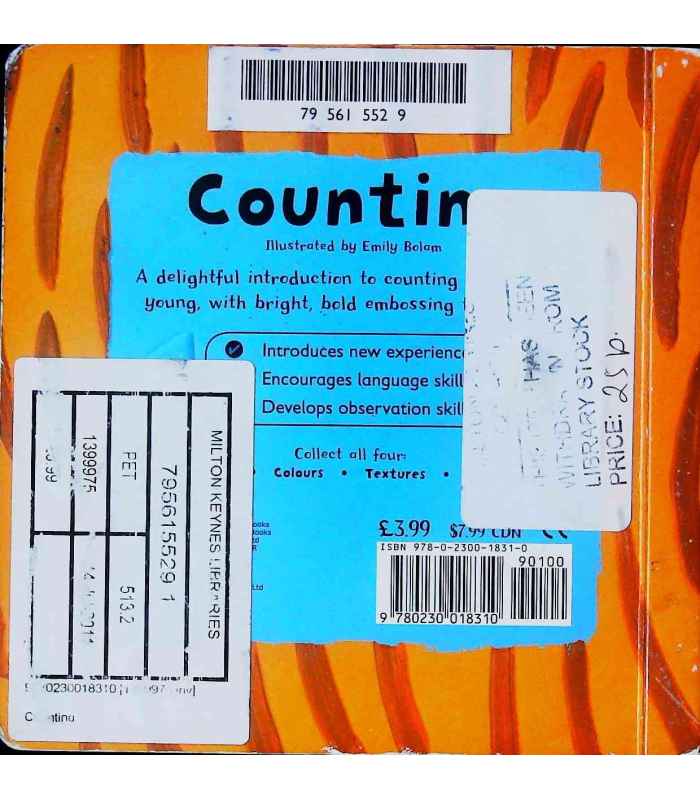 79 561 552 9
Countin
Illustrated by Emily Bolam
A delightful introduction to counting
young, with bright, bold embossing
Introduces new experienc
Encourages language skill
Develops observation skil
Collect all four:
Colours • Textures •
£3.99 $7.99 CDN
ISBN 978-0-2300-1831-0
90100
9 780230 018310
HAS
LIBRARY STOCK
PRICE: 25p.
MILTON KEYNES LIBRARIES
7956155291
PET 513.2
1399975